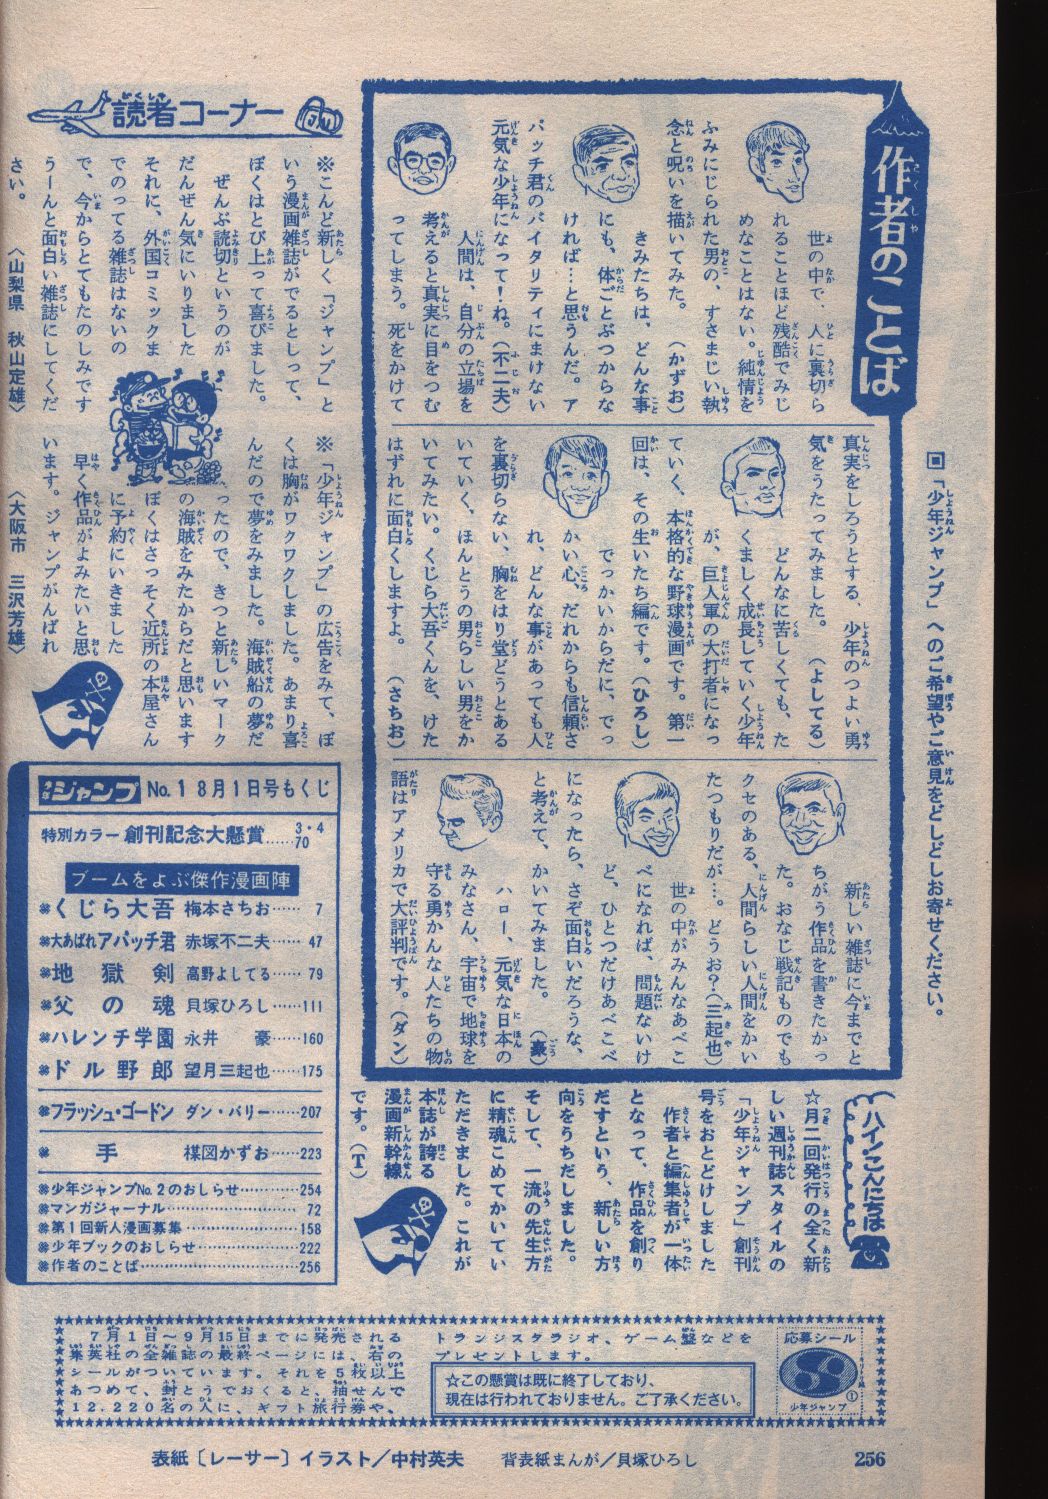 ■「少年ジャンプ」へのご希望やご意見をどしどしお寄せください。
作者のことば
世の中で、人に裏切ら
れることほど残酷でみじ
めなことはない。純情を
ふみにじられた男の、すさまじい執
念と呪いを描いてみた。（かずお）
きみたちは、どんな事
にも、体ごとぶつからな
ければ…と思うんだ。ア
パッチ君のバイタリティにまけない
元気な少年になって！ね。（不二夫）
人間は、自分の立場を
考えると真実に目をつむ
ってしまう。死をかけて
真実をしろうとする、少年のつよい勇
気をうたってみました。（よしてる）
どんなに苦しくても、た
くましく成長していく少年
が、巨人軍の大打者になっ
ていく、本格的な野球漫画です。第一
回は、その生いたち編です。（ひろし）
でっかいからだに、でっ
かい心、だれからも信頼さ
れ、どんな事があっても人
を裏切らない、胸をはり堂どうとある
いていく、ほんとうの男らしい男をか
いてみたい。くじら大吾くんを、けた
はずれに面白くしますよ。（さちお）
新しい雑誌に今までと
ちがう作品を書きたかっ
た。おなじ戦記ものでも
クセのある、人間らしい人間をかい
たつもりだが…。どうお？（三起也）
世の中がみんなあべこ
べになれば、問題ないけ
ど、ひとつだけあべこべ
になったら、さぞ面白いだろうな、
と考えて、かいてみました。（豪）
ハロー、元気な日本の
みなさん、宇宙で地球を
守る勇かんな人たちの物
語はアメリカで大評判です。（ダン）
読者コーナー
※こんど新しく「ジャンプ」と
いう漫画雑誌がでるとしって、
ぼくはとび上って喜びました。
ぜんぶ読切というのが
だんぜん気にいりました
それに、外国コミックま
でのってる雑誌はないの
で、今からとてもたのしみです
うーんと面白い雑誌にしてくだ
さい。〈山梨県　秋山定雄〉
※「少年ジャンプ」の広告をみて、ぼ
くは胸がワクワクしました。あまり喜
んだので夢をみました。海賊船の夢だ
ったので、きっと新しいマーク
の海賊をみたからだと思います
ぼくはさっそく近所の本屋さん
に予約にいきました
早く作品がよみたいと思
います。ジャンプがんばれ
〈大阪市　三沢芳雄〉
少年ジャンプ No.1 8月1日号もくじ
特別カラー 創刊記念大懸賞……3・4 70
ブームをよぶ傑作漫画陣
※くじら大吾 梅本さちお……7
※大あばれアパッチ君 赤塚不二夫……47
※地獄剣 高野よしてる……79
※父の魂 貝塚ひろし……111
※ハレンチ学園 永井　豪……160
※ドル野郎 望月三起也……175
※フラッシュ・ゴードン ダン・バリー……207
※手 楳図かずお……223
※少年ジャンプNo.2のおしらせ……254
※マンガジャーナル……72
※第1回新人漫画募集……158
※少年ブックのおしらせ……222
※作者のことば……256
ハイ・こんにちは
☆月二回発行の全く新
しい週刊誌スタイルの
「少年ジャンプ」創刊
号をおとどけしました
作者と編集者が一体
となって、作品を創り
だすという、新しい方
向をうちだしました。
そして、一流の先生方
に精魂こめてかいてい
ただきました。これが
本誌が誇る
漫画新幹線
です。（T）
7月1日〜9月15日までに発売される
集英社の全雑誌の最終ページには、右の
シールがついています。それを5枚以上
あつめて、封とうでおくると、抽せんで
12.220名の人に、ギフト旅行券や、
トランジスタラジオ、ゲーム盤などを
プレゼントします。
☆この懸賞は既に終了しており、
現在は行われておりません。ご了承ください。
応募シール
①
少年ジャンプ
表紙〔レーサー〕イラスト／中村英夫　背表紙まんが／貝塚ひろし
256